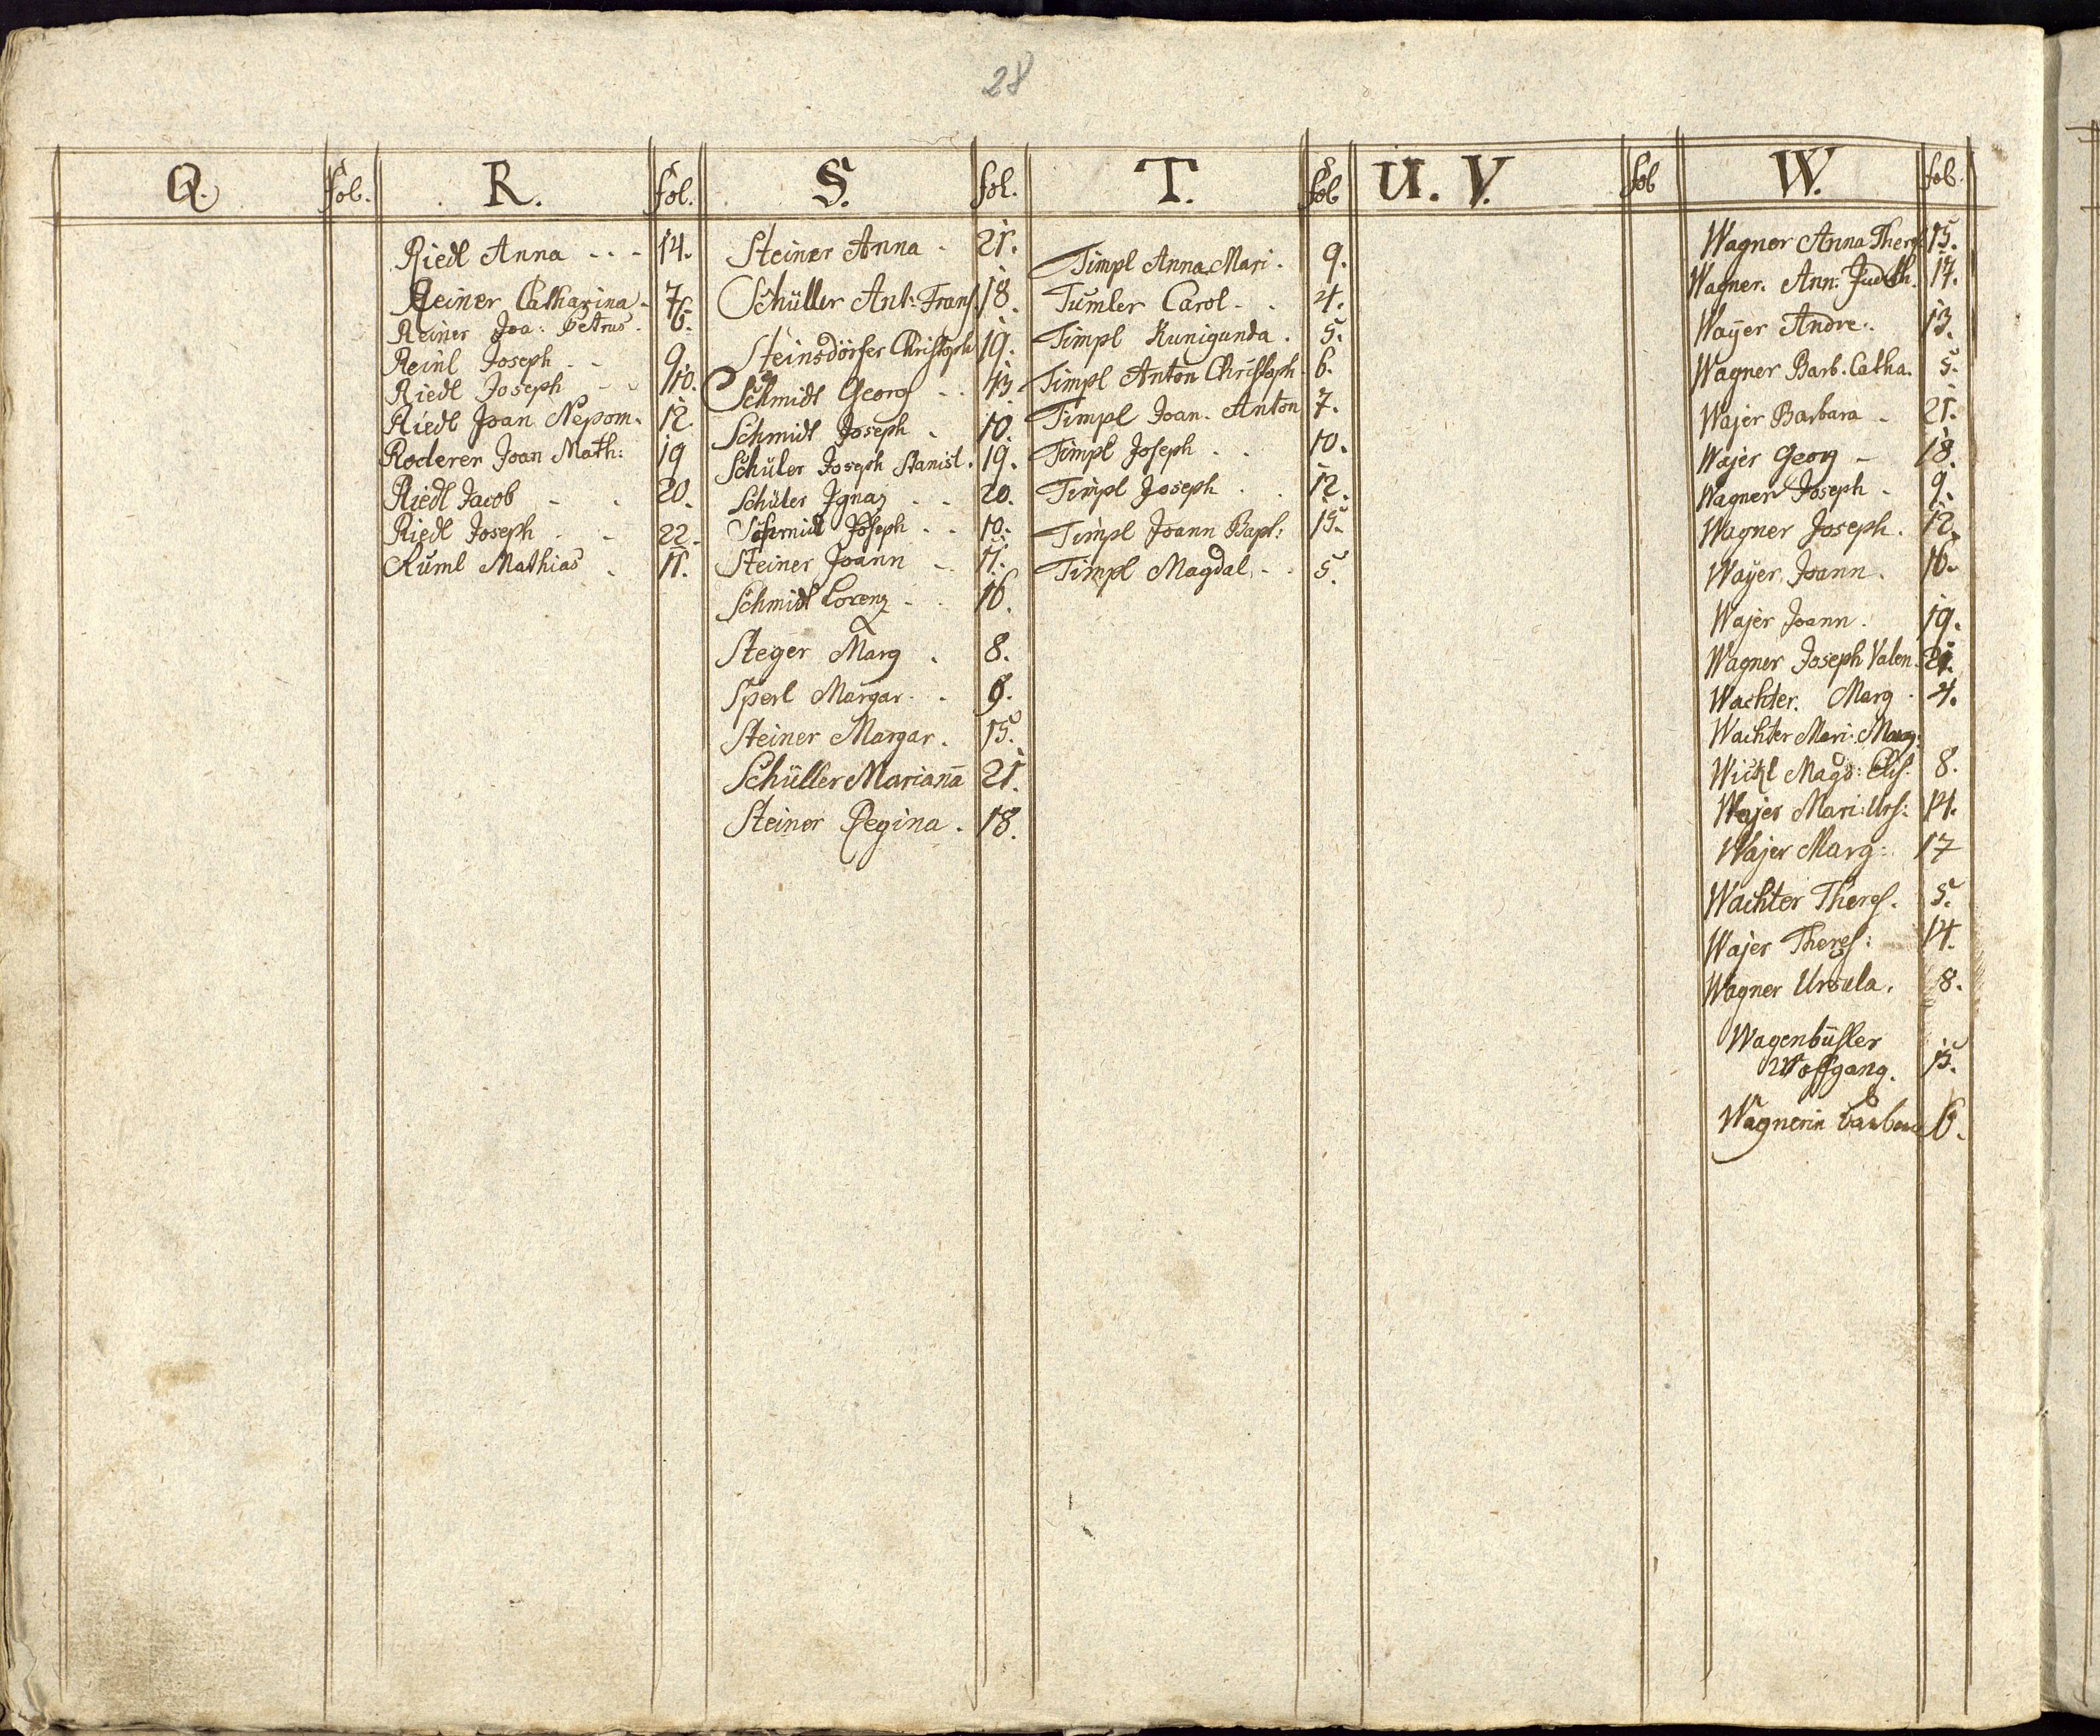 28
Q. fol. R. fol. S. fol. T. fol U. V. fol W. fol.
Riedl Anna 14.
Reiner Catharina 7.
Reiner Joa: Petrus 6.
Reinl Joseph 9.
Riedl Joseph 10.
Riedl Joan Nepom. 12.
Roderer Joan Math: 19
Riedl Jacob 20.
Riedl Joseph 22.
Ruml Mathias 11.
Steiner Anna 21.
Schüller Ant: Frans. 18.
Steinsdörfer Christoph 19.
Schmidt Georg 13
Schmidt Joseph 10.
Schüler Joseph Stanisl. 19.
Schüler Ignaz 20.
Schmidt Joseph 10.
Steiner Joann 11.
Schmidt Lorenz 16.
Steger Marg 8.
Sperl Margar.
Steiner Margar. 15.
Schüller Mariana 21.
Steiner Regina 18.
Timpl Anna Mari. 9.
Tumler Carol 4.
Timpl Kunigunda 5.
Timpl Anton Christoph 6.
Timpl Joan. Anton 7.
Timpl Joseph 10.
Timpl Joseph 12.
Timpl Joann Bapt: 15.
Timpl Magdal. 5.
Wagner Anna Theres 15.
Wagner Ann. Judith. 14.
Waÿer Andre. 13.
Wagner Barb. Catha. 5.
Wajer Barbara 21.
Wajer Georg 18.
Wagner Joseph 9.
Wagner Joseph. 12.
Waÿer Joann. 16.
Wajer Joann. 19.
Wagner Joseph Valen. 21.
Wachter. Marg 4.
Wachter Mari. Marg.
Wickl Magd: Elis. 8.
Wajer Mari: Urs: 14.
Wajer Marg: 17
Wachter Theres. 5.
Wajer Theres: 14.
Wagner Ursula. 8.
Wagenbüsler
Wolfgang. 15.
Wagnerin Barbara 6.